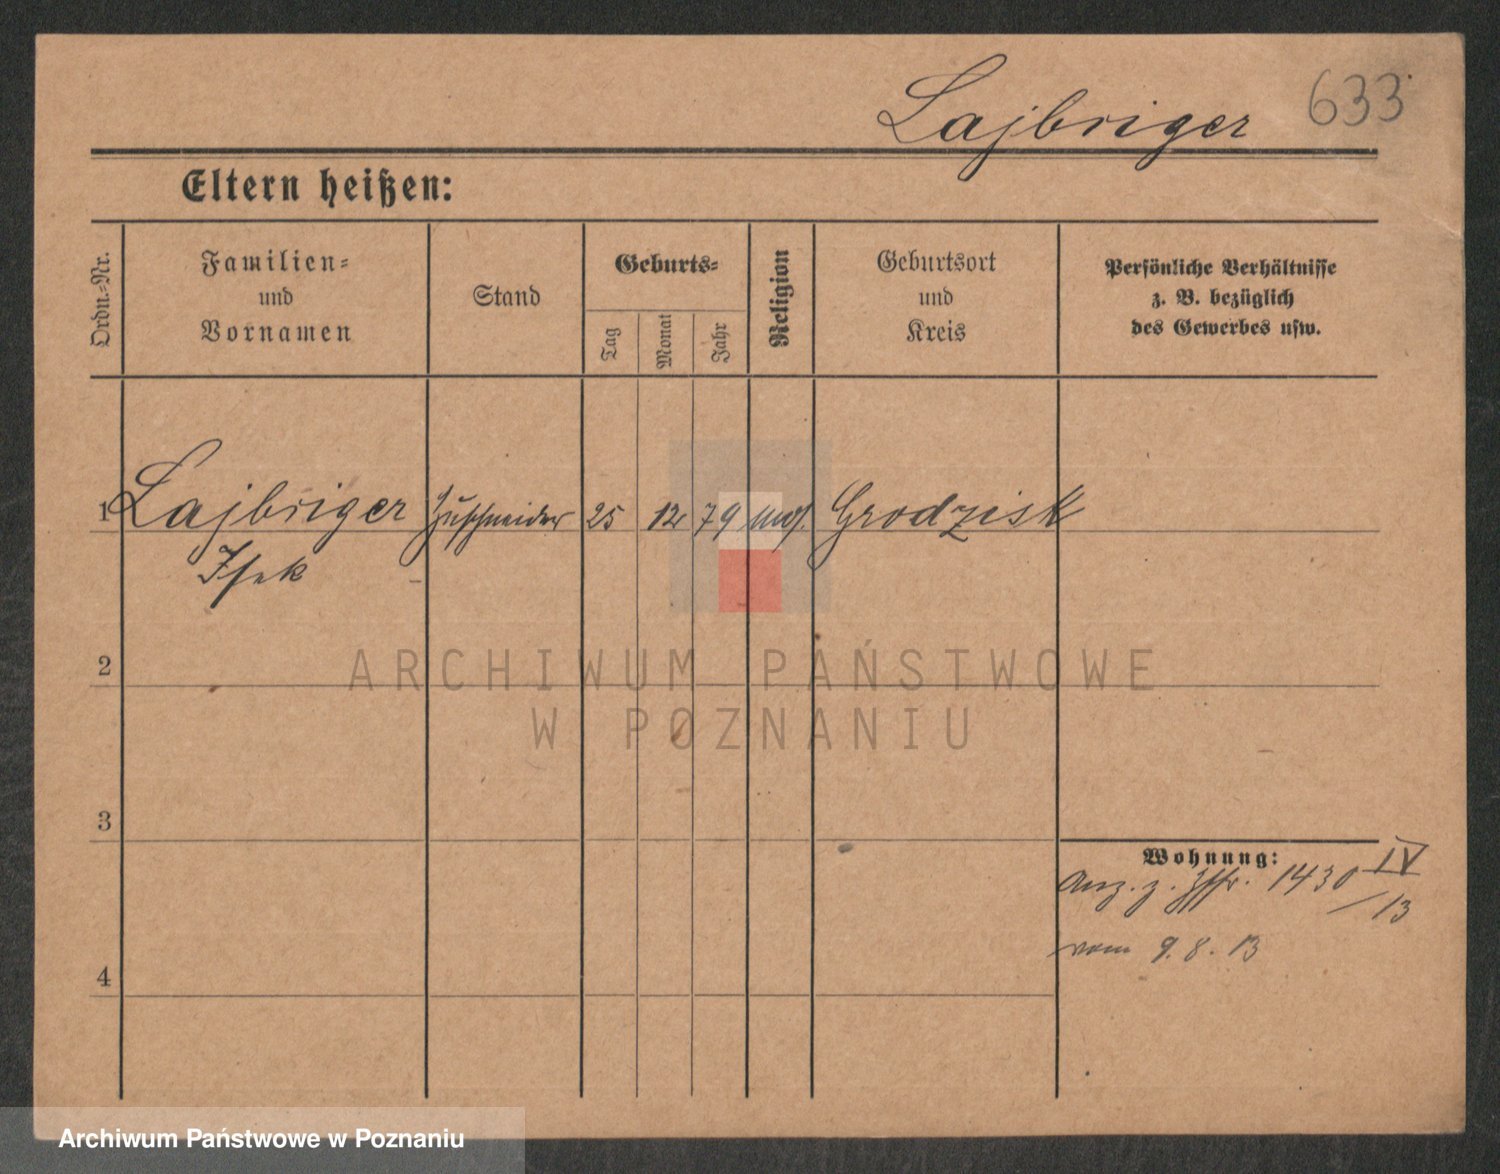 Lajbriger 633
Eltern heißen:
Ordn.-Nr.
Familien-
und
Vornamen
Stand
Geburts-
Tag
Monat
Jahr
Religion
Geburtsort
und
Kreis
Persönliche Verhältnisse
z. B. bezüglich
des Gewerbes usw.
1 Lajbriger Zuschneider 25 12 79 mos. Grodzisk
Isek
2
ARCHIWUM PAŃSTWOWE
W POZNANIU
3
Wohnung:
Anz. z. 1430 IV
/13
vom 9.8.13
4
Archiwum Państwowe w Poznaniu